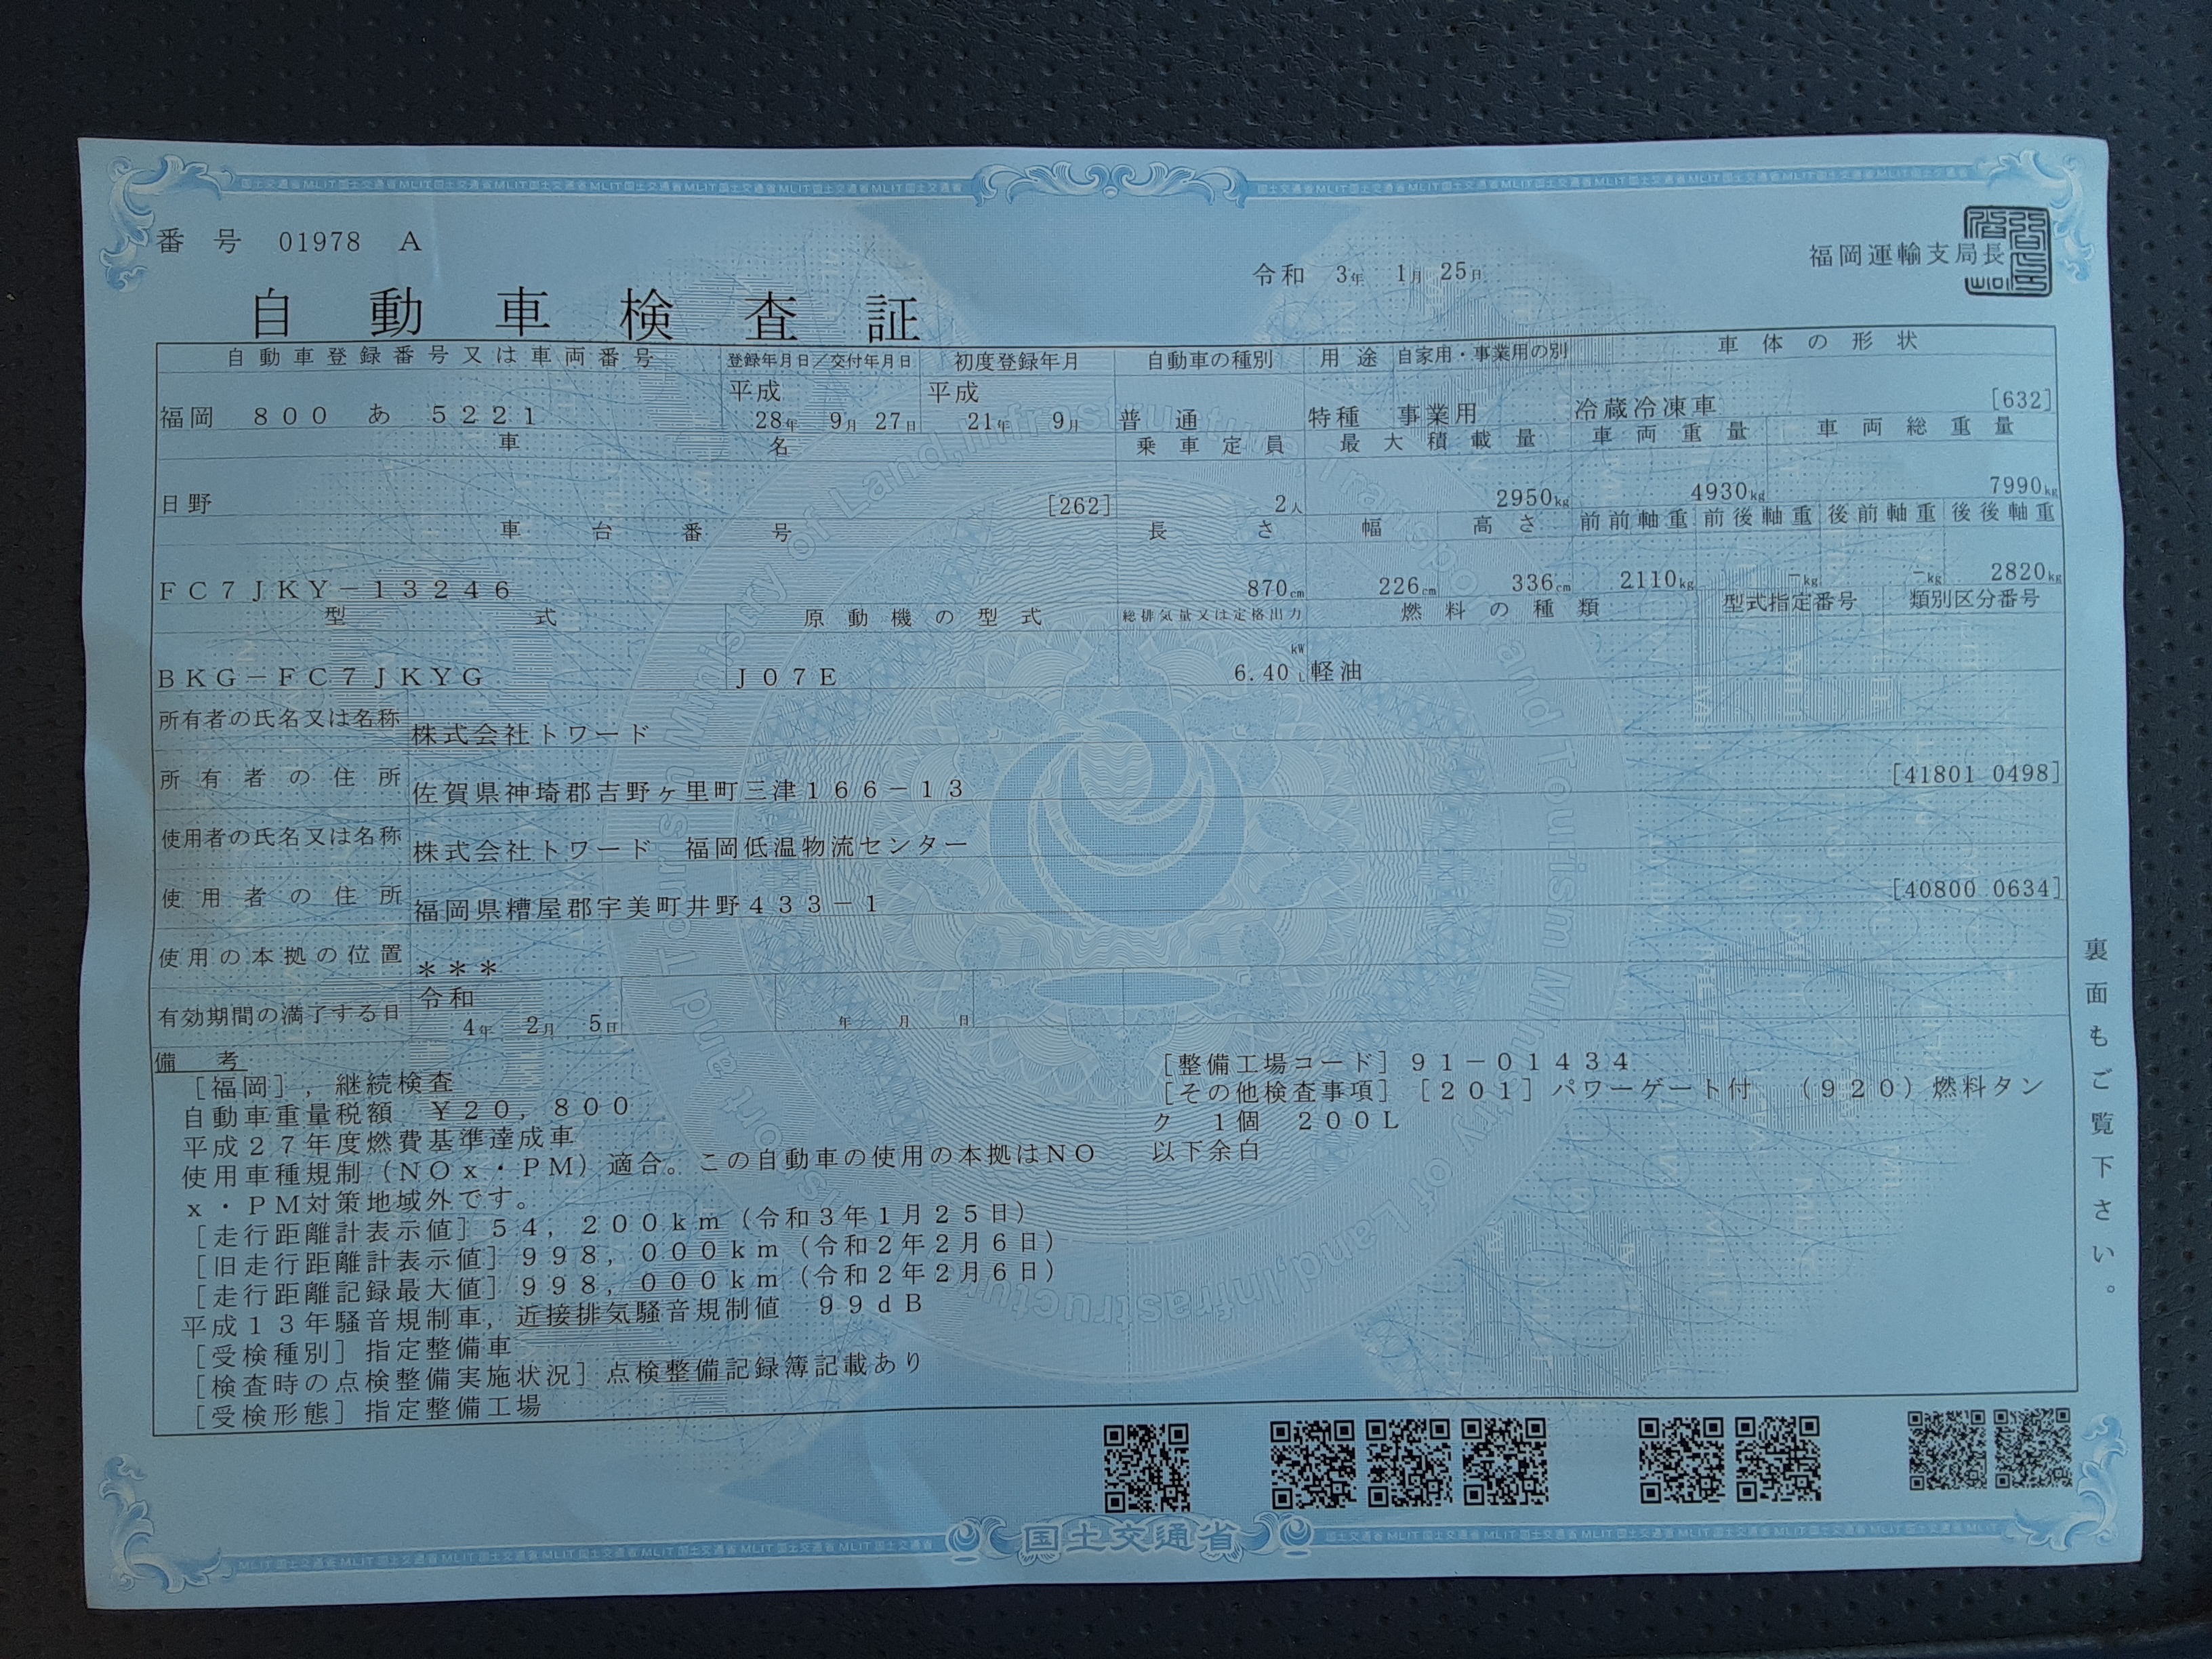 番号 01978 A
令和 3年 1月 25日
福岡運輸支局長
自動車検査証
自動車登録番号又は車両番号 登録年月日／交付年月日 初度登録年月 自動車の種別 用途 自家用・事業用の別 車体の形状
平成 平成
福岡 800 あ 5221 28年 9月 27日 21年 9月 普通 特種 事業用 冷蔵冷凍車 [632]
車名 乗車定員 最大積載量 車両重量 車両総重量
日野 [262] 2人 2950kg 4930kg 7990kg
車台番号 長さ 幅 高さ 前前軸重 前後軸重 後前軸重 後後軸重
FC7JKY－13246 870cm 226cm 336cm 2110kg －kg －kg 2820kg
型式 原動機の型式 総排気量又は定格出力 燃料の種類 型式指定番号 類別区分番号
kW
BKG－FC7JKYG J07E 6.40 L 軽油
所有者の氏名又は名称 株式会社トワード
所有者の住所 佐賀県神埼郡吉野ヶ里町三津166－13 [41801 0498]
使用者の氏名又は名称 株式会社トワード 福岡低温物流センター
使用者の住所 福岡県糟屋郡宇美町井野433－1 [40800 0634]
使用の本拠の位置 ＊＊＊
有効期間の満了する日 令和
4年 2月 5日 年 月 日
備考
［福岡］，継続検査
自動車重量税額 ￥20，800
平成27年度燃費基準達成車
使用車種規制（NOx・PM）適合。この自動車の使用の本拠はNO
x・PM対策地域外です。
［走行距離計表示値］54，200km（令和3年1月25日）
［旧走行距離計表示値］998，000km（令和2年2月6日）
［走行距離記録最大値］998，000km（令和2年2月6日）
平成13年騒音規制車，近接排気騒音規制値 99dB
［受検種別］指定整備車
［検査時の点検整備実施状況］点検整備記録簿記載あり
［受検形態］指定整備工場
［整備工場コード］91－01434
［その他検査事項］［201］パワーゲート付 （920）燃料タン
ク 1個 200L
以下余白
裏面もご覧下さい。
国土交通省